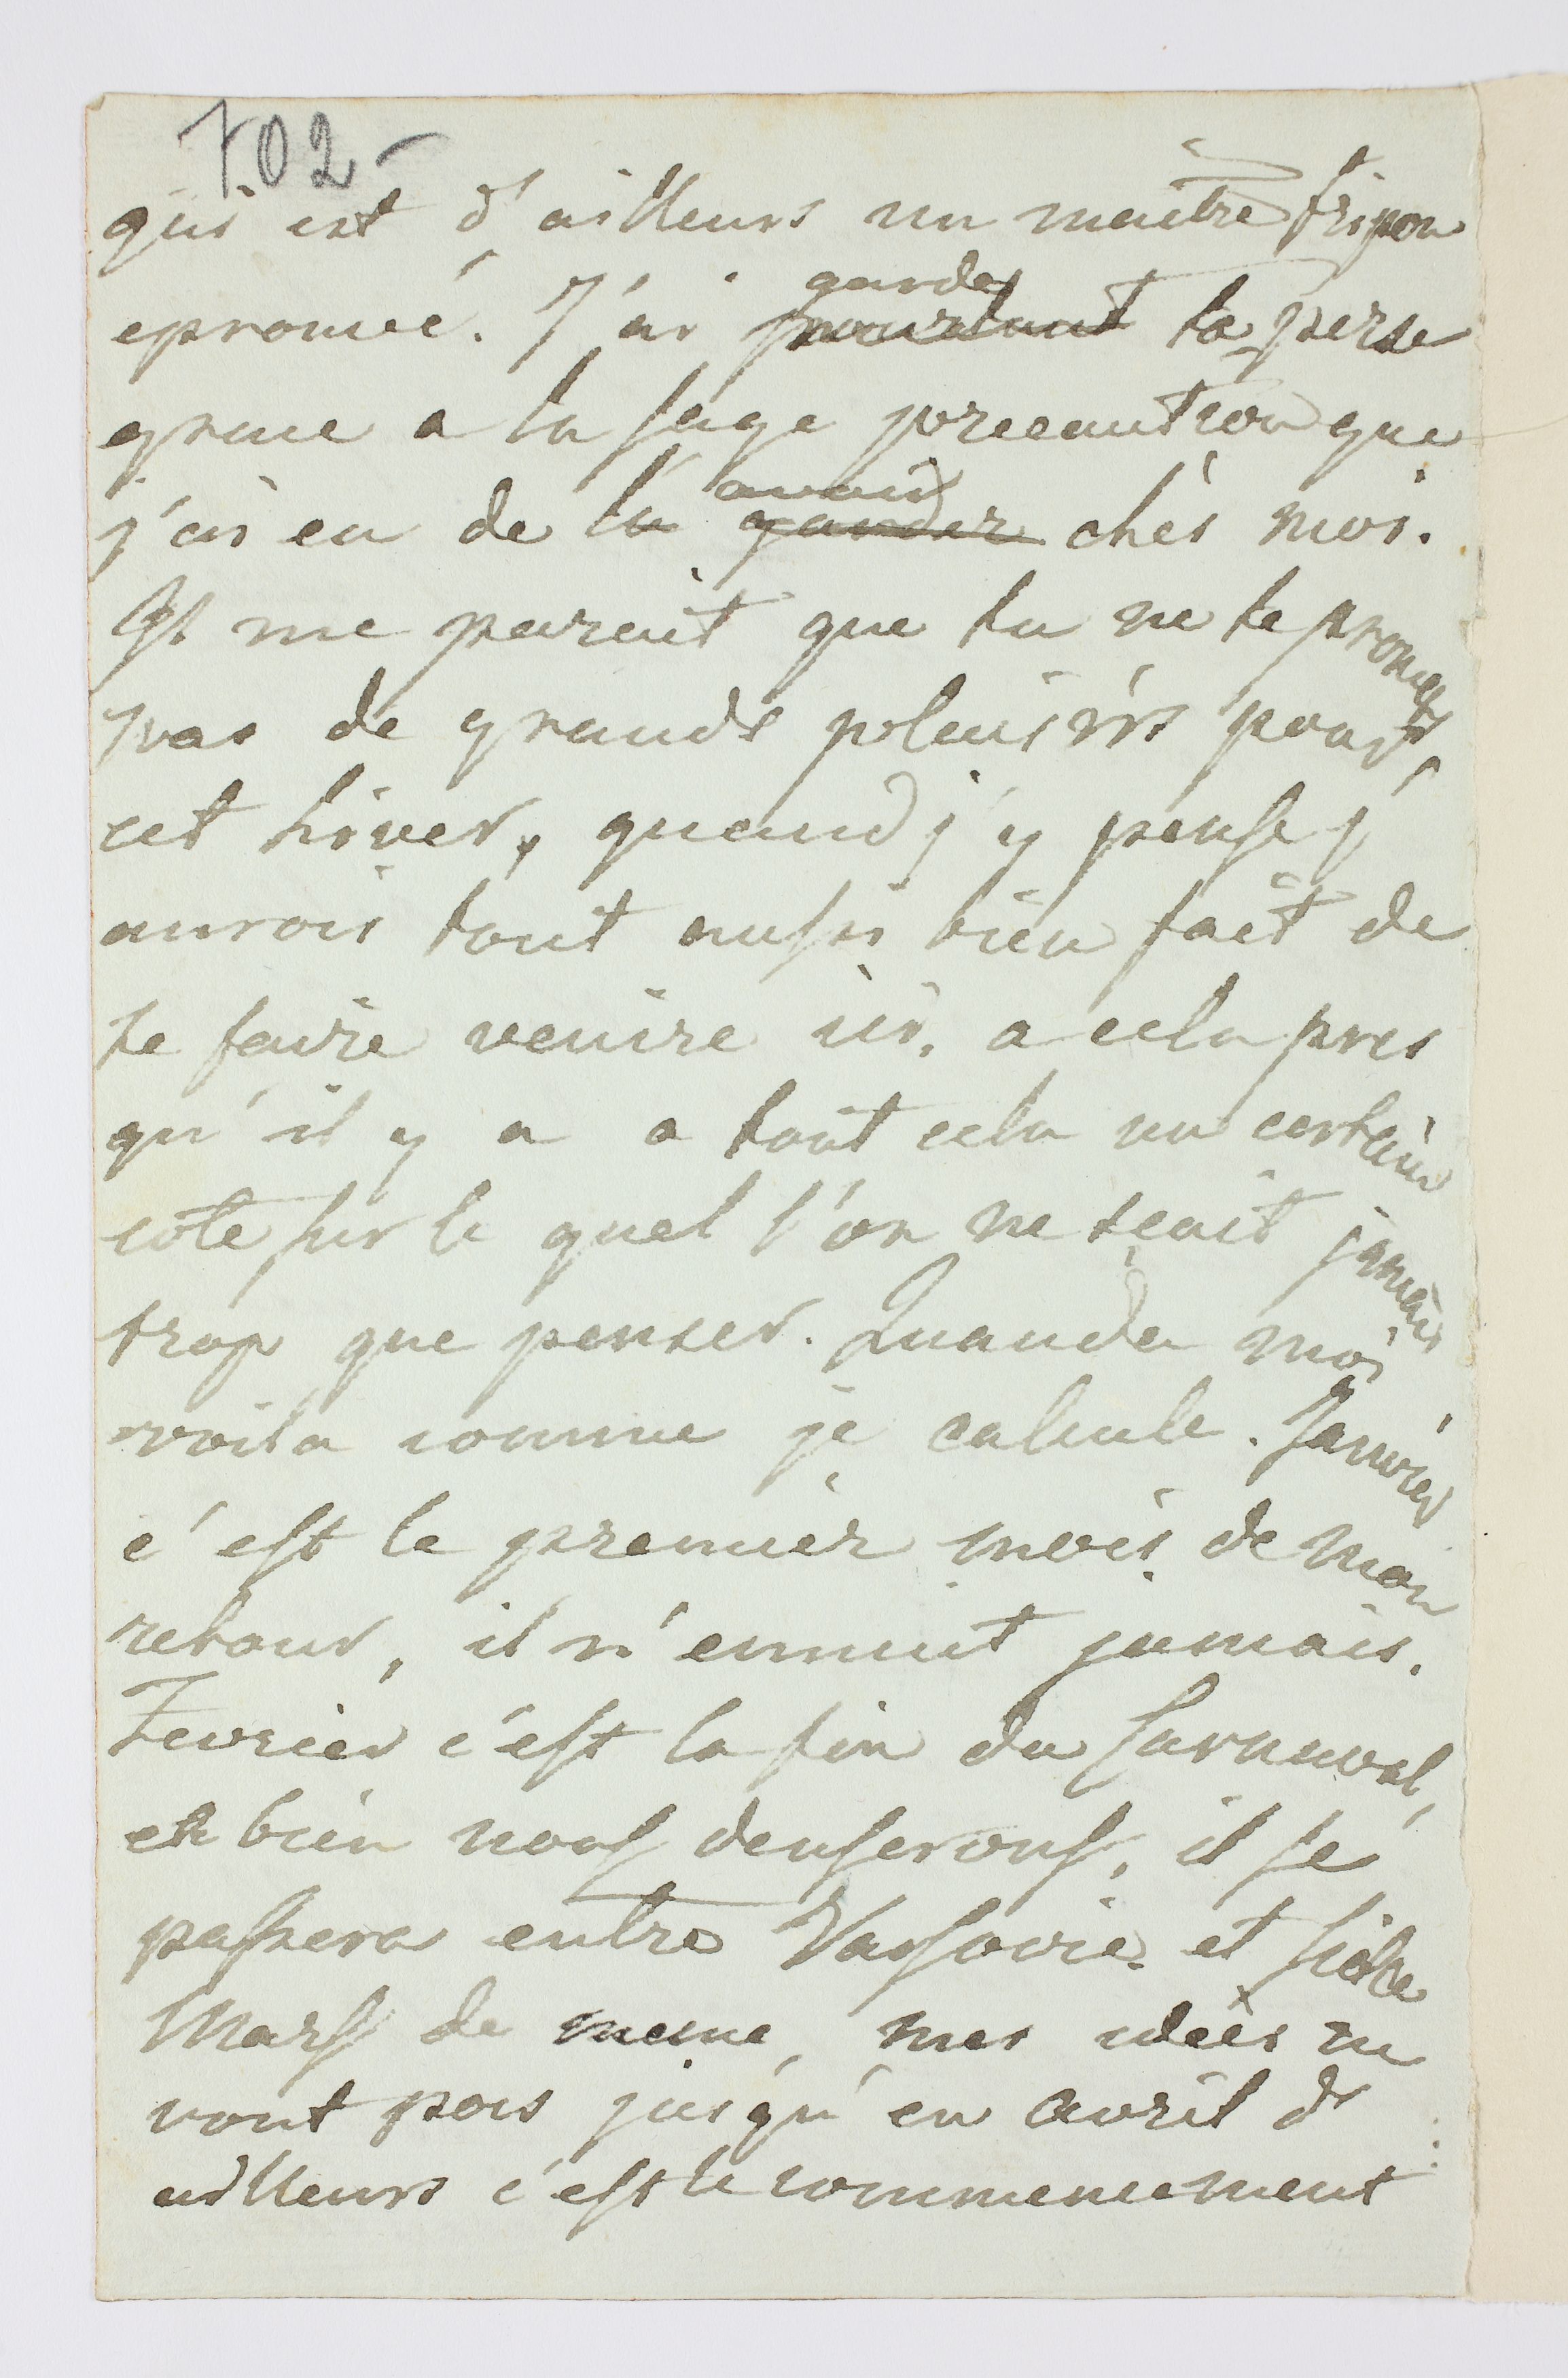 702-
qui est d'ailleurs un maitre fripon
eprouvé. J'ai gardé pourtant ta perse
grace a la sage precaution que
j'ai eu de la avoir garder chés moi.
Il me parait que tu ne te promets
pas de grands plaisirs pour
cet hiver, quand j'y pense j'
aurois tout aussi bien fait de
te faire venire ici, a cela pres
qu'il y a a tout cela un certain
coté sur le quel l'on ne sçait jamais
trop que penser. Quand a moi
voila comme je calcule. Janvier
c'est le premier mois de mon
retour, il n'ennuit jamais.
Fevrier c'est la fin du Carnaval,
eh bien nous danserons, il se
passera entre Varsovie et
Mars de meme, mes idées ne
vont pas jusqu'en avril d'
ailleurs c'est le commencement